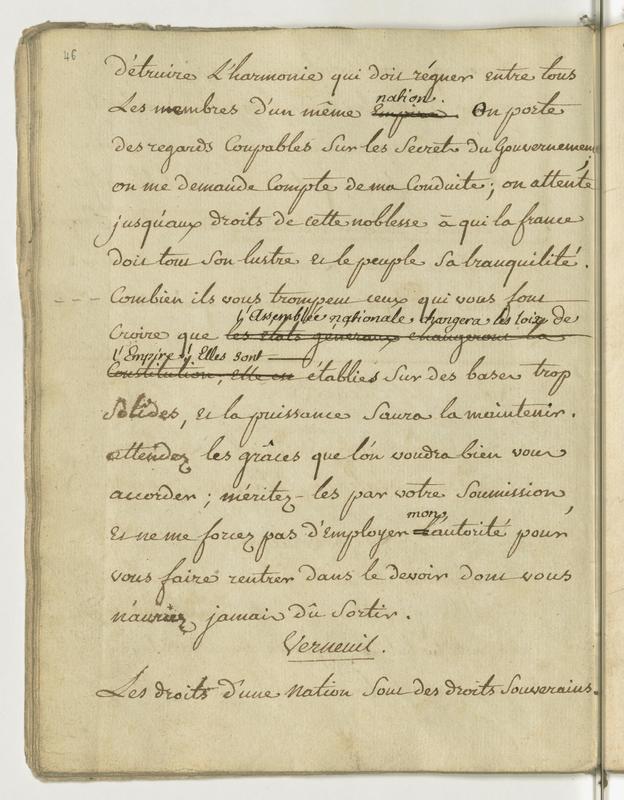 46
détruire L'harmonie qui doit régner entre tous
nation.
Les membres d'un même Empire. On porte
des regards Coupables Sur les Secrets du Gouvernement,
on me demande Compte de ma Conduite; on attente
jusqu'aux droits de cette noblesse à qui la france
doit tout Son lustre et le peuple Sa tranquilité.
Combien ils vous trompent ceux qui vous font
l'Assemblée nationale, changera les loix de
Croire que les états généraux changeront la
l'Empire; Elles sont
Constitution, Elle est établies Sur des bases trop
Solides, et la puissance Saura la maintenir.
attendez les grâces que l'ón voudra bien vous
accorder; méritez-les par votre Soumission,
Et ne me forcez pas d'Employer l'autorité pour
mon
vous faire rentrer dans le devoir dont vous
n'auriez jamais dû Sortir.
Verneuil.
Les droits d'une Nation Sont des droits Souverains.